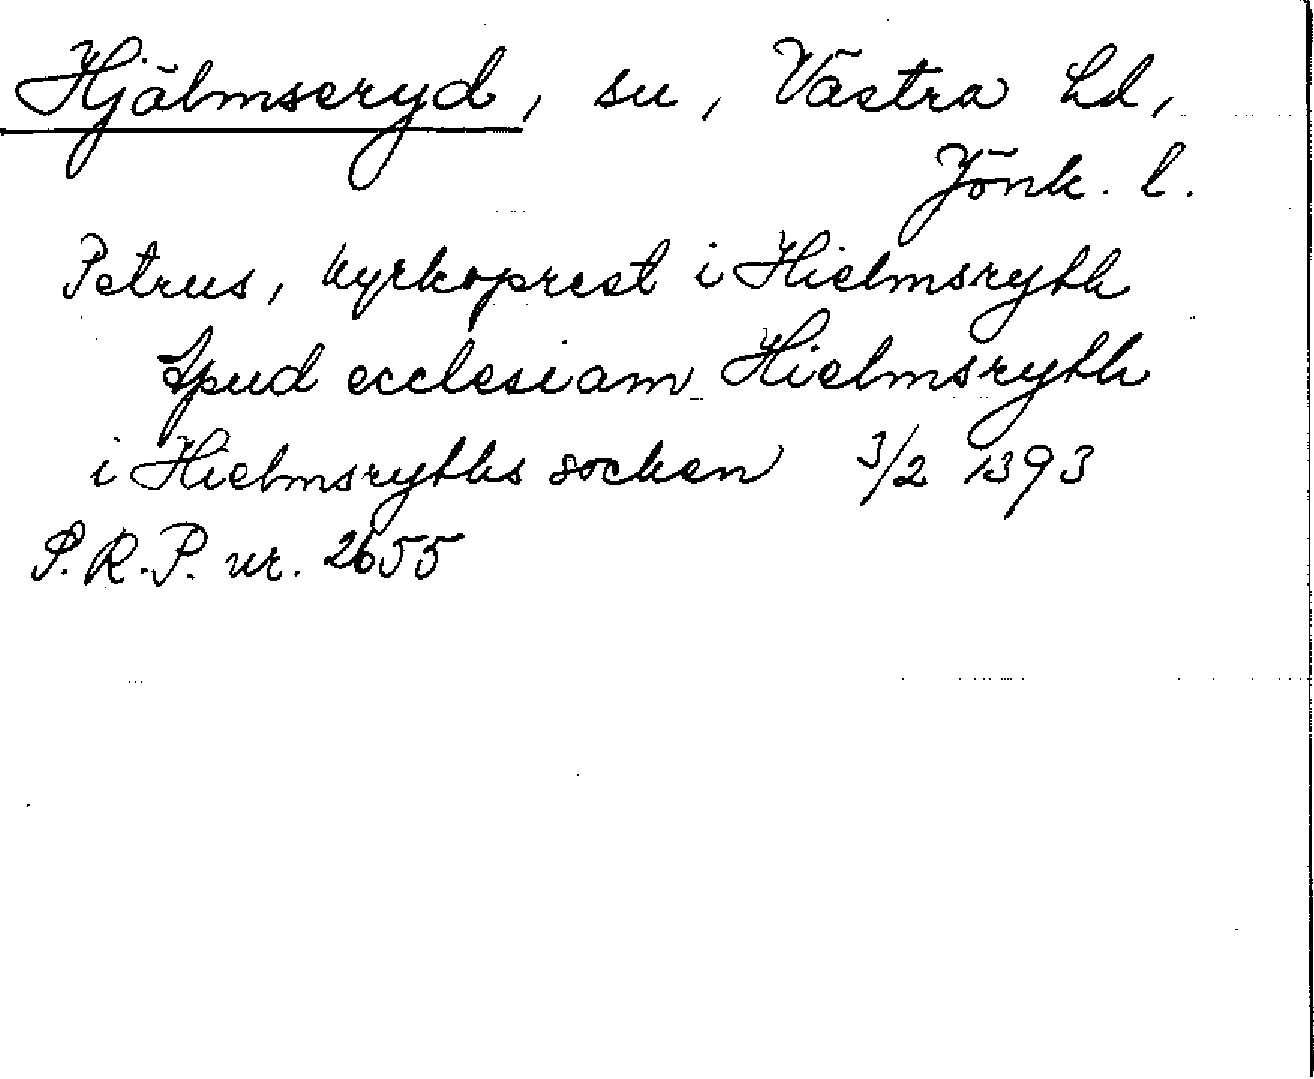 Hjälmseryd, sn, Västra hd,
Jönk. l.
Petrus, kyrkoprest i Hielmsryth
Apud ecclesiam Hielmsryth
i Hielmsryths socken 3/2 1393
S.R.P. nr. 2655